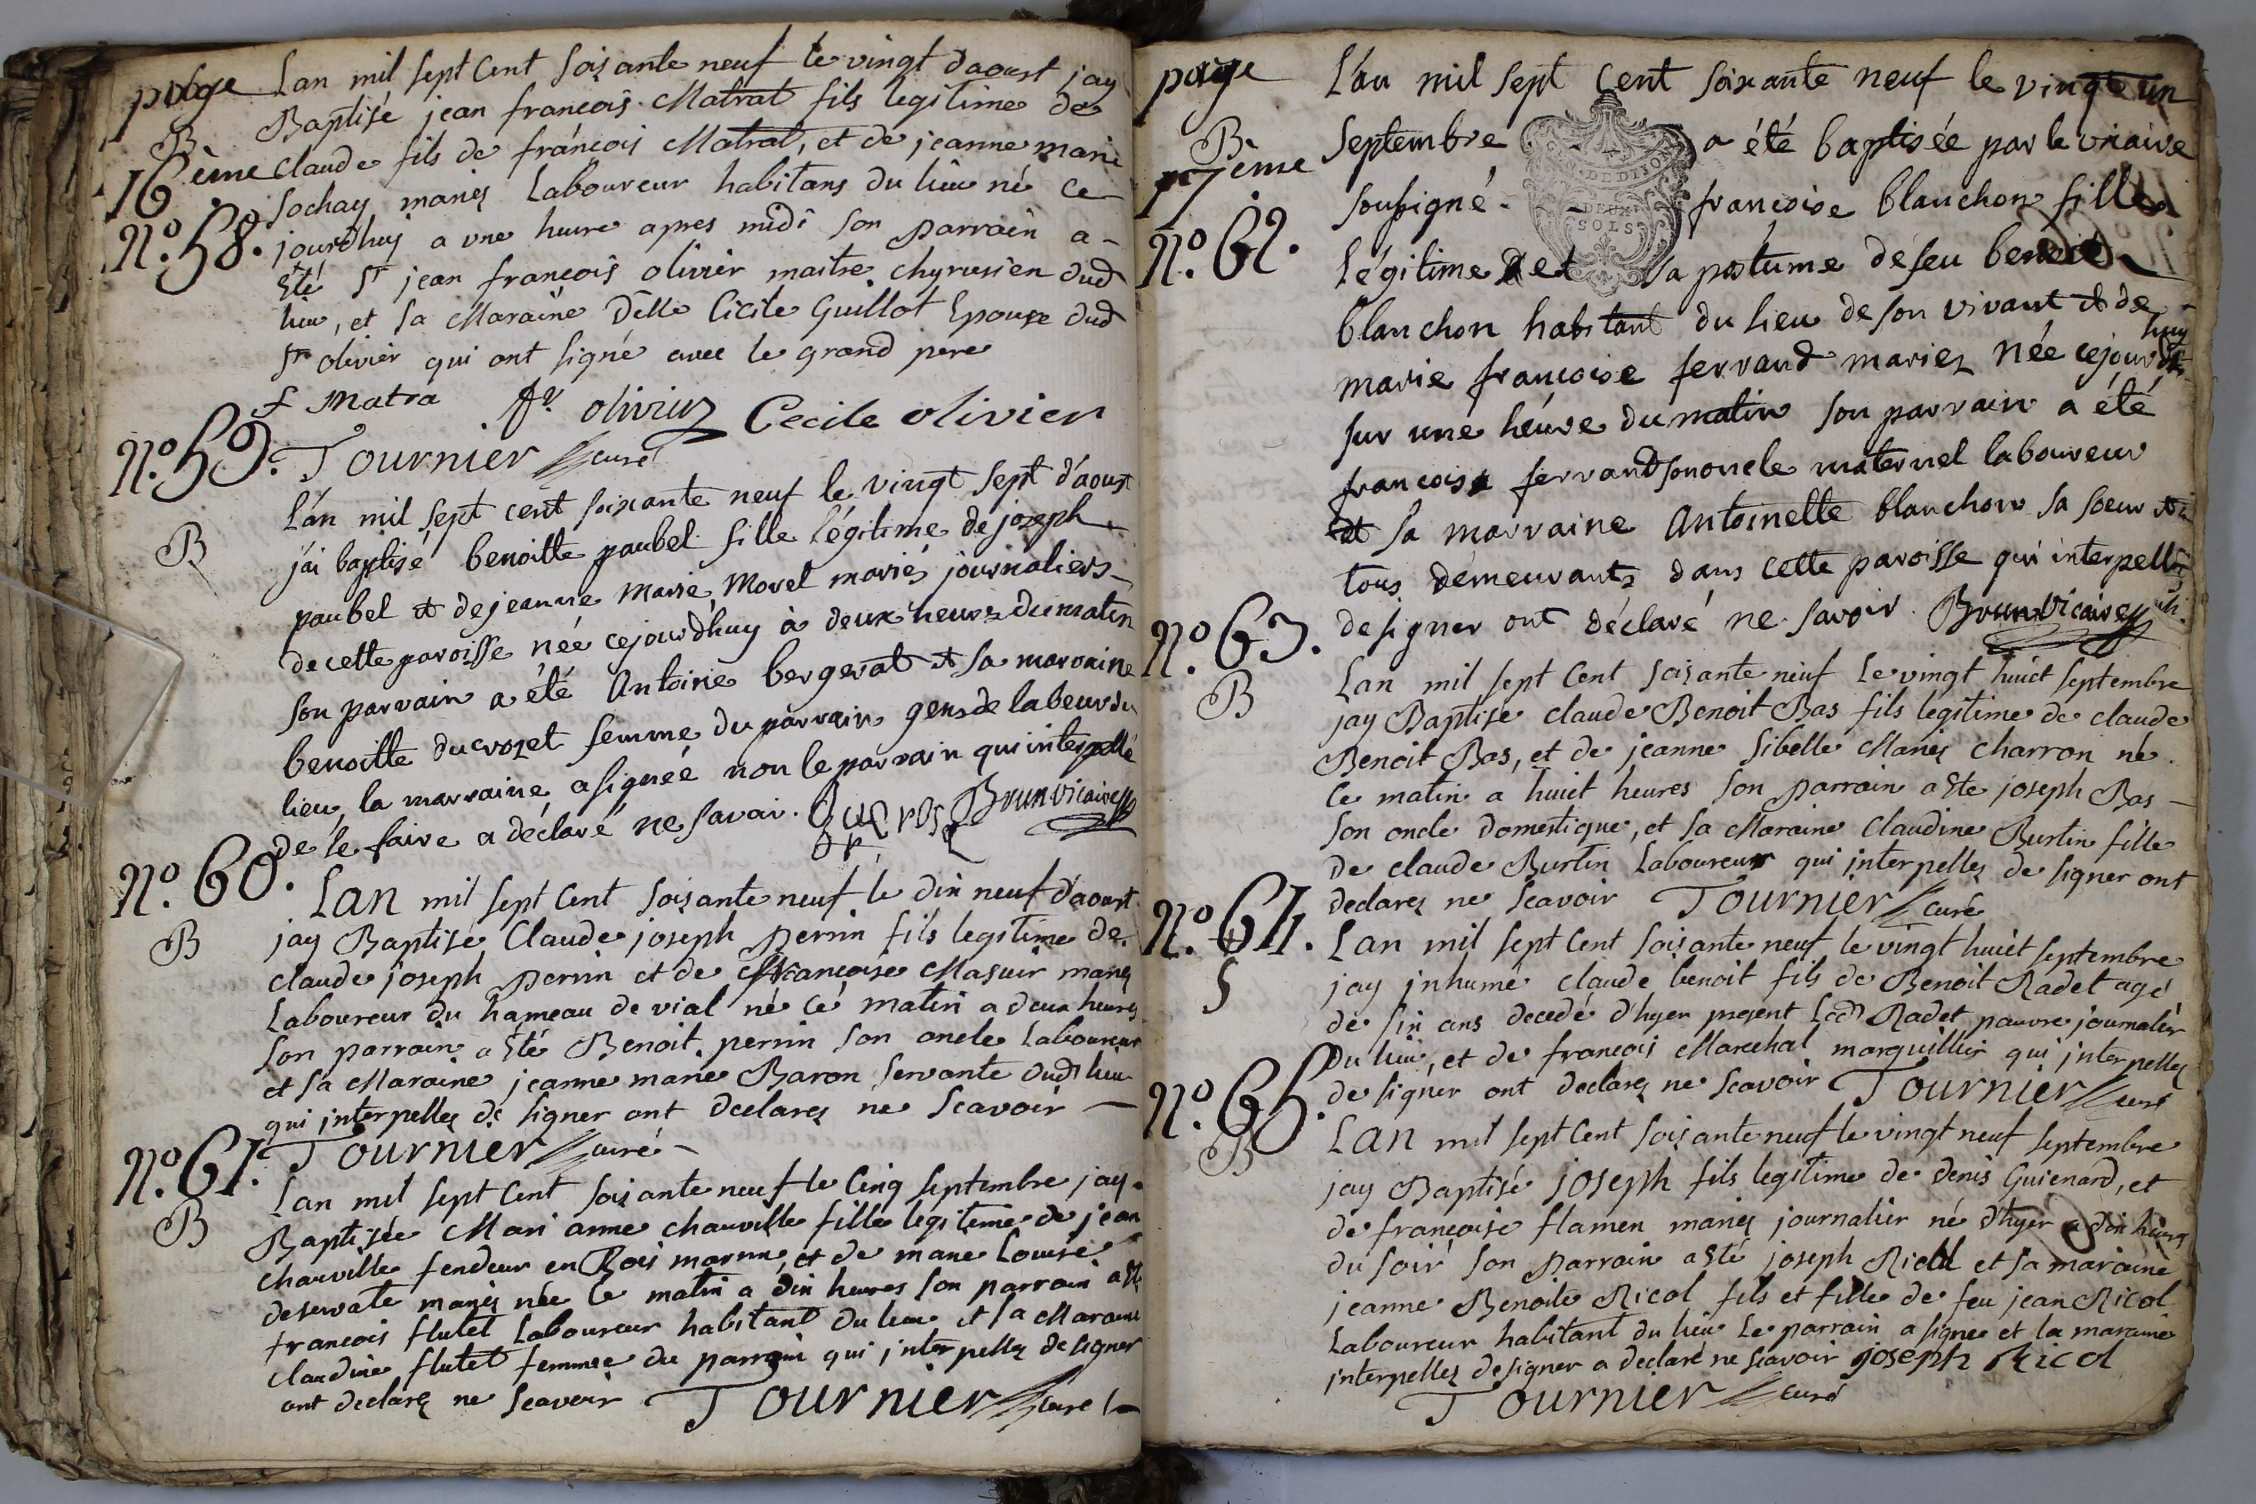 page
B
16ème
N.º 58.
Lan mil sept Cent soixante neuf le vingt daoust jay
Baptisé jean francois Matrat fils legitime de
claude fils de francois Matrat, et de jeanne marie
sochay mariez Laboureur habitans du lieu né ce
jourdhuy a une heure apres midi son parrain a
Eté Sr jean francois olivier maitre chyrurien dud
lieu, et sa Maraine Delle Cicile Guillot Epouse dud
Sr olivier qui ont signé avec le grand pere
f Matra fr. olivier Cecile olivier
Tournier curé
N.º 59.
B
L'an mil sept cent soixante neuf le vingt sept d'aoust
j'ai baptisé benoitte paubel fille légitime de joseph
paubel et de jeanne marie Morel mariés journaliers
de cette paroisse née cejourdhuy à deux heures du matin
son parrain a été Antoine bergerat et sa marraine
benoitte ducrozet femme du parrain gens de labeur du
lieu, la marraine a signée non le parrain qui interpellé
de le faire a déclaré ne savoir. Brun vicaire
N.º 60.
B
Lan mil sept Cent soixante neuf le dix neuf d'aoust
jay Baptisé Claude joseph perrin fils legitime de
claude joseph perrin et de francoise Masuir mariez
Laboureur du hameau de vial né ce matin a deux heures
son parrain a Eté Benoit perrin son oncle Laboureur
et sa Maraine jeanne marie Baron servante dud lieu
qui interpellez de signer ont declarez ne Scavoir
Tournier curé
N.º 61.
B
Lan mil sept Cent soixante neuf le Cinq septembre jay
Baptisée Mari anne chauville fille legitime de jean
chauville fendeur en Bois et de marie Louise
deservate mariez née ce matin a dix heures son parrain a Eté
francois flutet Laboureur habitant du lieu et sa Maraine
claudine flutet femme du parrain qui interpellez de signer
ont declarez ne Scavoir Tournier curé
page
B
17ème
N.º 62.
L'an mil sept Cent soixante neuf le vingt un
Septembre a été baptisée par le vicaire
soussigné francoise blanchon fille
légitime et postume de feu benoit
blanchon habitant du lieu de son vivant et de
marie francoise ferrand mariez Née cejourdhuy
sur une heure du matin son parrain a été
francois ferrand son oncle maternel laboureur
et sa marraine Antoinette blanchon sa soeur
tous demeurants dans cette paroisse qui interpellés
de signer ont déclaré ne savoir. Brun vicaire
GEN. DE DIJON
DEUX
SOLS
N.º 63.
B
Lan mil sept Cent soixante neuf le vingt huict septembre
jay Baptise claude Benoit Bas fils legitime de claude
Benoit Bas, et de jeanne sibelle Mariez charron né
ce matin a huict heures son parrain a Ete joseph Bas
son oncle domestique, et sa Maraine Claudine Burtin fille
de claude Burtin Laboureur qui interpellez de signer ont
declarez ne Scavoir Tournier curé
N.º 64.
S
Lan mil sept Cent soixante neuf le vingt huict septembre
jay inhumé claude benoit fils de Benoit Radet agé
de six ans decedé d'hyer present Led Radet pauvre journalier
du lieu, et de francois Marechal marguillier qui interpellez
de signer ont declarez ne Scavoir Tournier curé
N.º 65.
B
Lan mil sept Cent soixante neuf le vingt neuf septembre
jay Baptisé joseph fils legitime de denis Guienard, et
de francoise flamen mariez journalier né d'hyer a dix heures
du soir son parrain a Eté joseph Ricol et sa maraine
jeanne Benoite Ricol fils et fille de feu jean Ricol
Laboureur habitant du lieu Le parrain a signe et la maraine
interpellez de signer a declaré ne scavoir joseph Ricol
Tournier curé